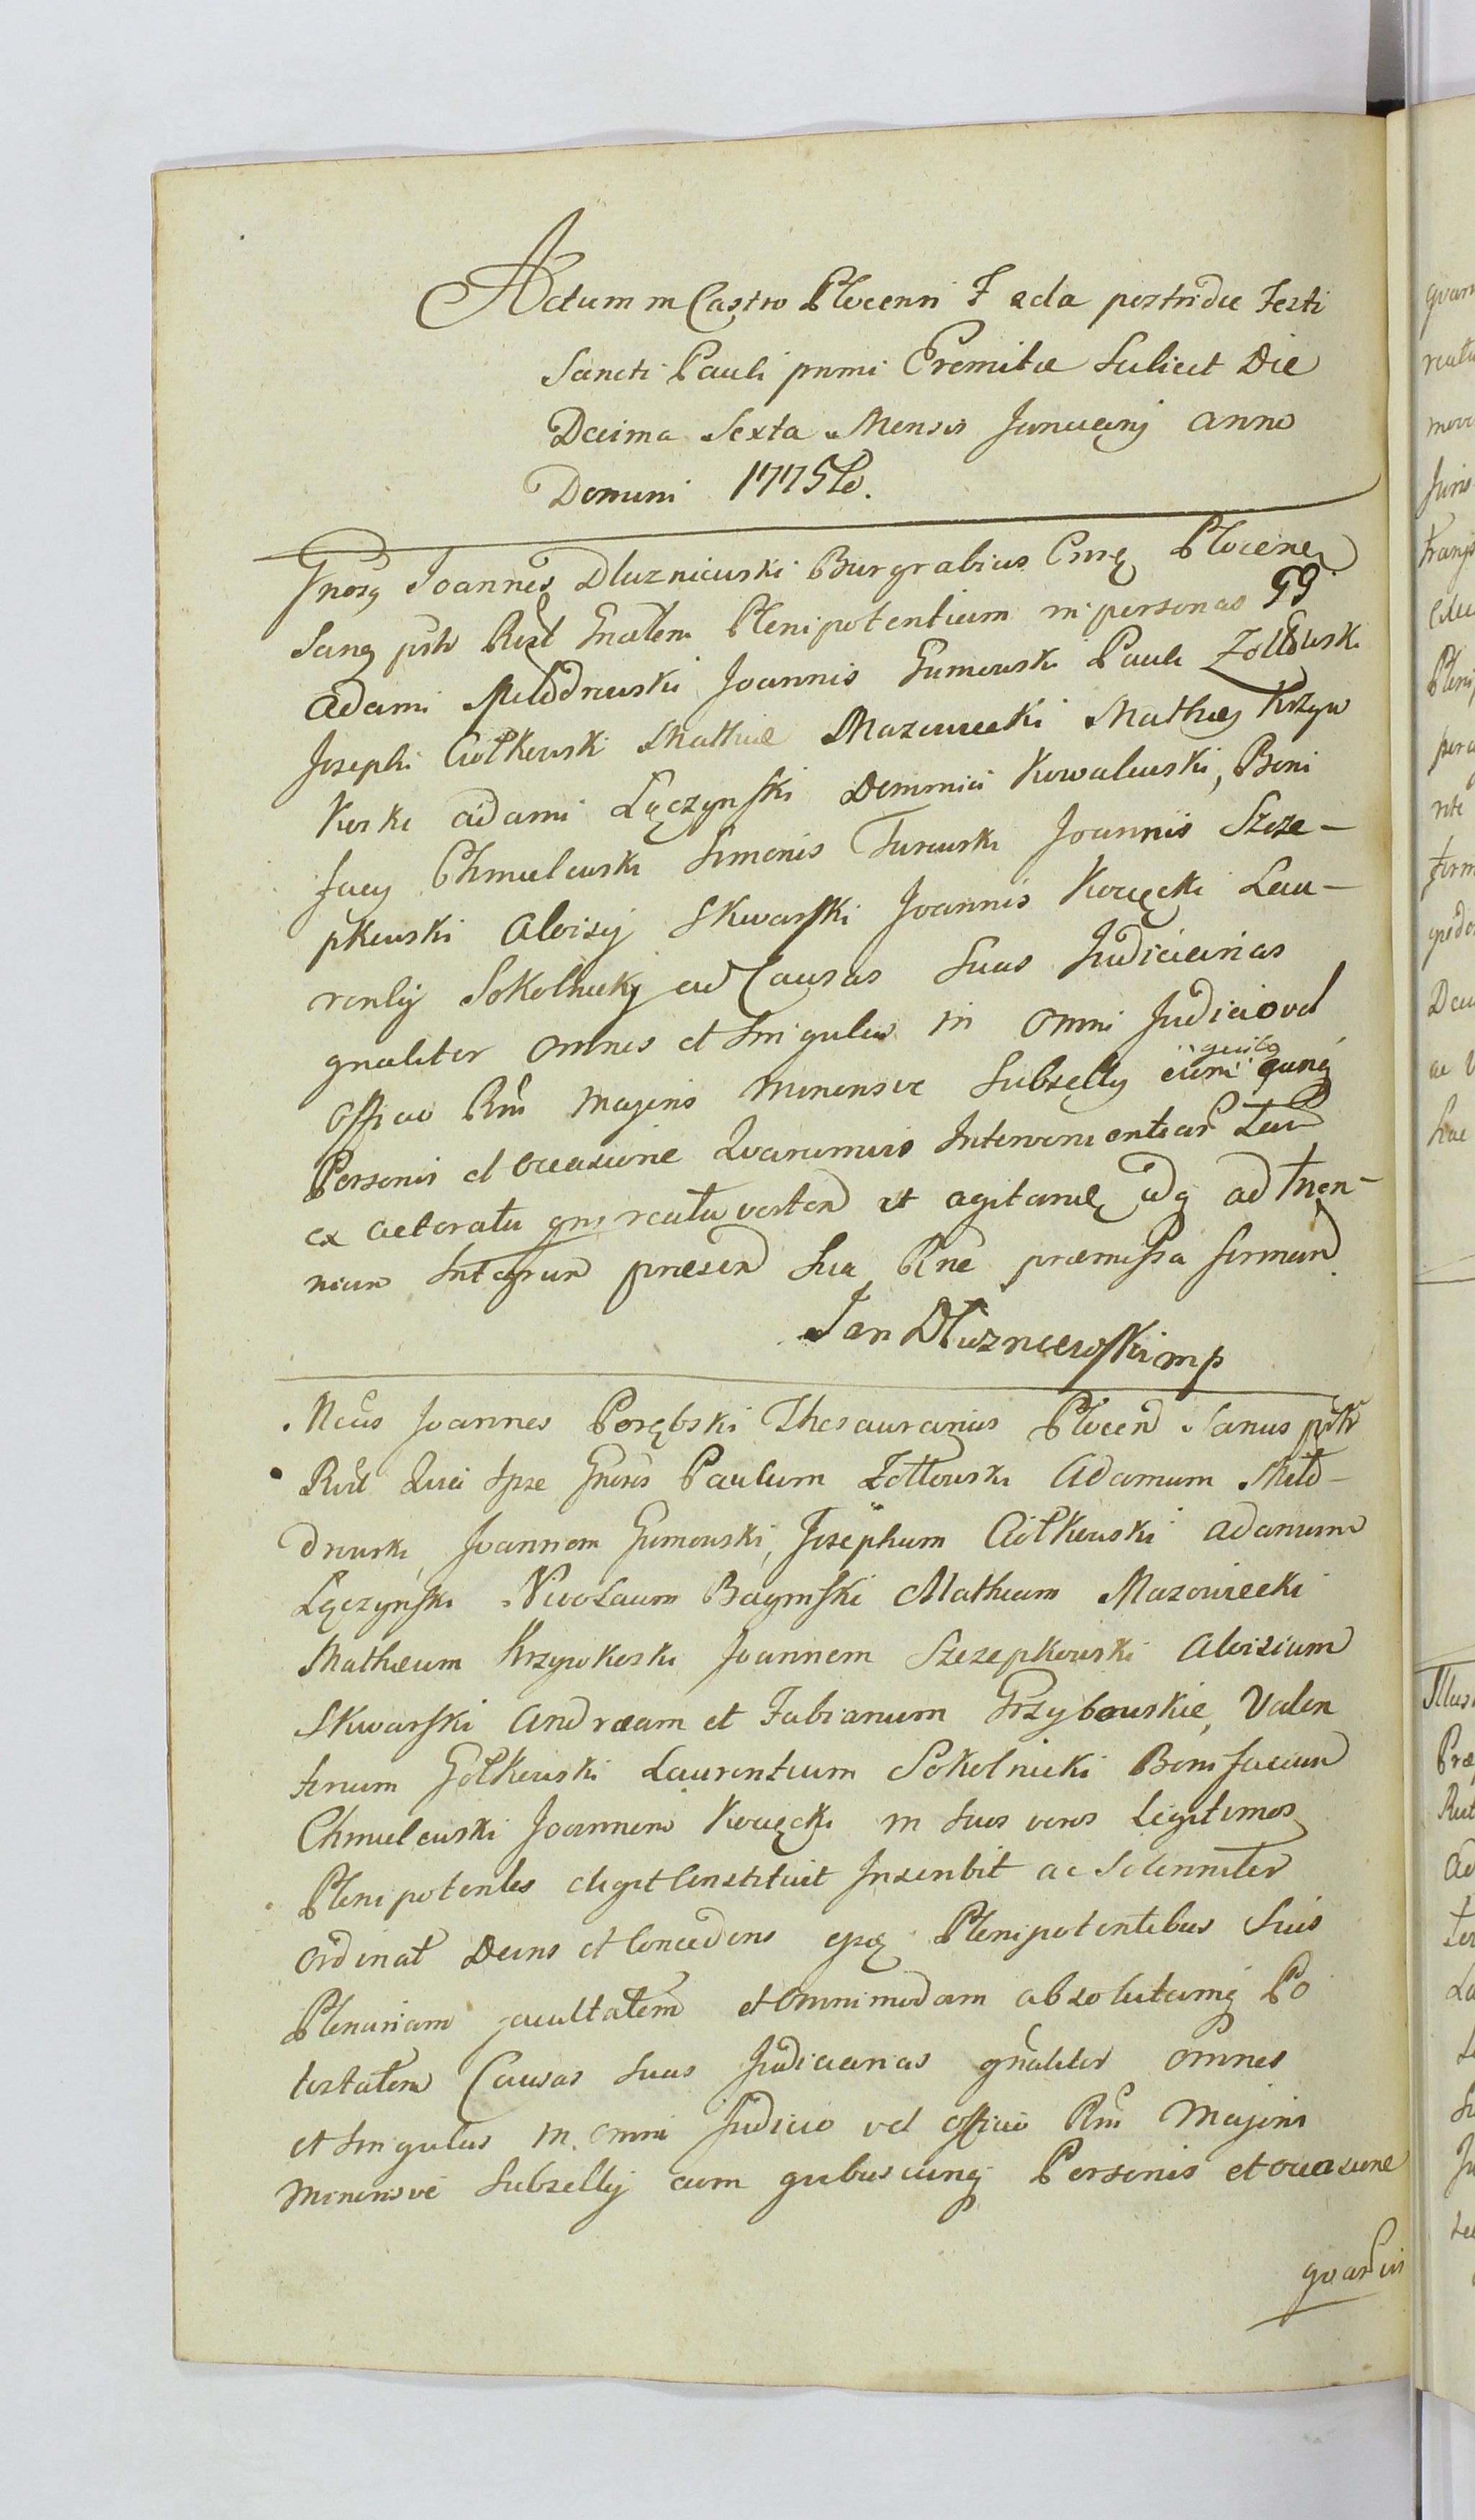 Actum in Castro Plocenn Feria postridie Festi
Sancti Pauli primi Eremitæ Scilicet Die
Decima Sexta Mensis Januarij anno
Domini 1775to.
Gnosq Joannes Dluzniewski Burgrabius Cnsę Plocenę
Sanq psltr Rext Gnalem Plenipotentiam in personas GG
Adami Miłodrowski Joannis Gumowski Pauli Zołtowski
Josephi Ciołkowski Mathiæ Mazowiecki Mathęj Krzyw
koski Adami Łączynski Dominici Kowalewski, Boni
facij Chmielewski Simonis Turowski Joannis Szcze-
pkowski Aloisij Skwarski Joannis Kocięcki Lau-
rentij Sokolnickj ad Causas Suas Judiciarias
gnaliter omnes et Singulas in omni Judicio vel
Officio Rni Majoris Minorisve Subsellij cum quibq cunq
Personis et occasione Quarumvis Intervenientiar Tam
ex actoratu qm reatu verten et agitanę idq ad trien-
nium Integrum præsen Sua Rne præmissa firman
Jan Dłuzniewski mp
Ncus Joannes Porębski Thesaurarius Plocen Sanus psltr
Rext Quia Ipse Gnosos Paulum Zołtowski Adamum Miło-
drowski Joannem Gumowski, Josephum Ciołkowski Adamum
Łączynski Nicolaum Bagieński Mathiam Mazowiecki
Mathæum Krzywkoski Joannem Szczepkowski Aloisium
Skwarski Andræam et Fabianum Grzybowskie, Valen
tinum Gołkowski Laurentium Sokolnicki Bonifacium
Chmielewski Joannem Kocięcki in Suos veros Legitimos
Plenipotentes eligit Constituit Inscribit ac Solenniter
ordinat Dans et Concedens ejsę Plenipotentibus Suis
Plenariam facultatem et Omnimodam absolutamq Po
testatem Causas Suas Judiciarias gnaliter omnes
et Singulas in omni Judicio vel Officio Rni Majoris
Minorisve Subsellij cum quibuscunq Personis et occasione
quarũvis